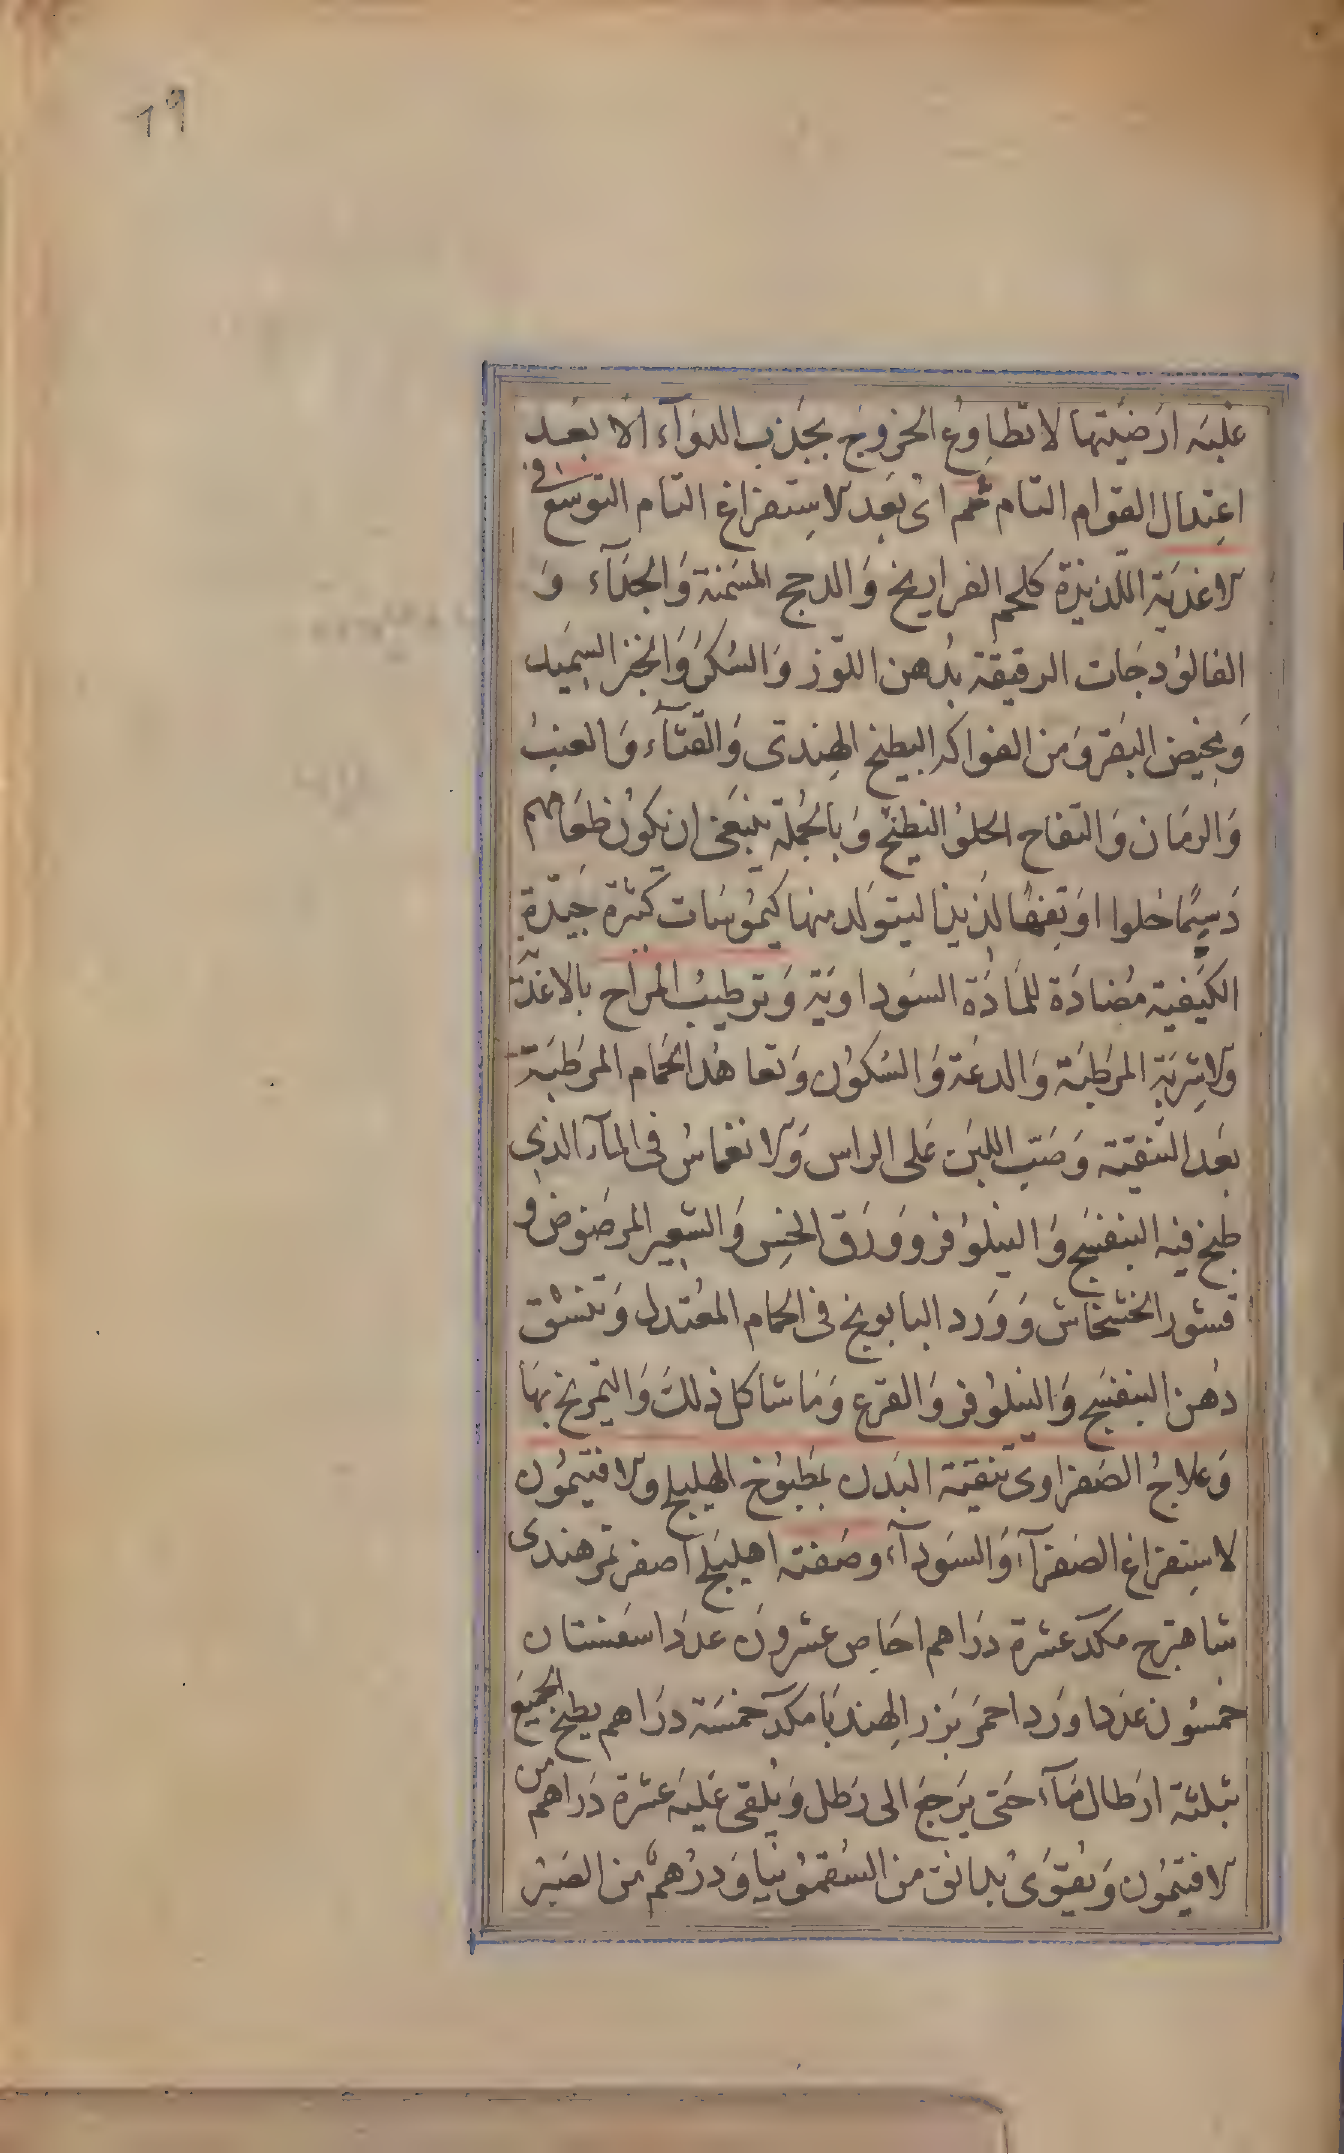 19
غلبه ارضيتها لا تطاوع الخروج بجذب الدوآء الا بعد
اعتدال القوام التام ثم اى بعد الاستفراغ التام التوسع فى
الاغذية اللذيذة كلحم الفراريج والدجج المسمنة والجدآء و
الفالوذجات الرقيقة بدهن اللوز والسكر والخبز السميد
ومخيض البقر ومن الفواكه البطيخ الهندى والقثآء والعنب
والرمان والتفاح الحلو النضيج وبالجملة ينبغى ان يكون طعامهم
دسما حلوا او تفها لذيذا ليتولد منها كيموسات كثيرة جيدة
الكيفية مضادة للمادة السوداوية وترطيب المزاج بالاغذية
والاشربة المرطبة والدعة والسكون وتعاهد الحمام المرطبة
بعد التنقية وصب اللبن على الراس والانغماس فى المآء الذى
طبخ فيه البنفسج والنيلوفر وورق الخس والشعير المرضوض و
قشور الخشخاش وورد البابونج فى الحمام المعتدل وتنشق
دهن البنفسج والنيلوفر والقرع وما شاكل ذلك والتمريخ بها
وعلاج الصفراوى تنقية البدن بمطبوخ الهليلج والافتيمون
لاستفراغ الصفرآء والسودآء وصفته اهليلج اصفر تمر هندى
شاهترج مكد عشرة دراهم اجاص عشرون عددا سفستان
خمسون عددا ورد احمر بزر الهندبا مكد خمسة دراهم يطبخ الجميع
بثلثة ارطال مآء حتى يرجع الى رطل ويلقى عليه عشرة دراهم من
الافتيمون ويقوى بدانق من السقمونيا ودرهم من الصبر